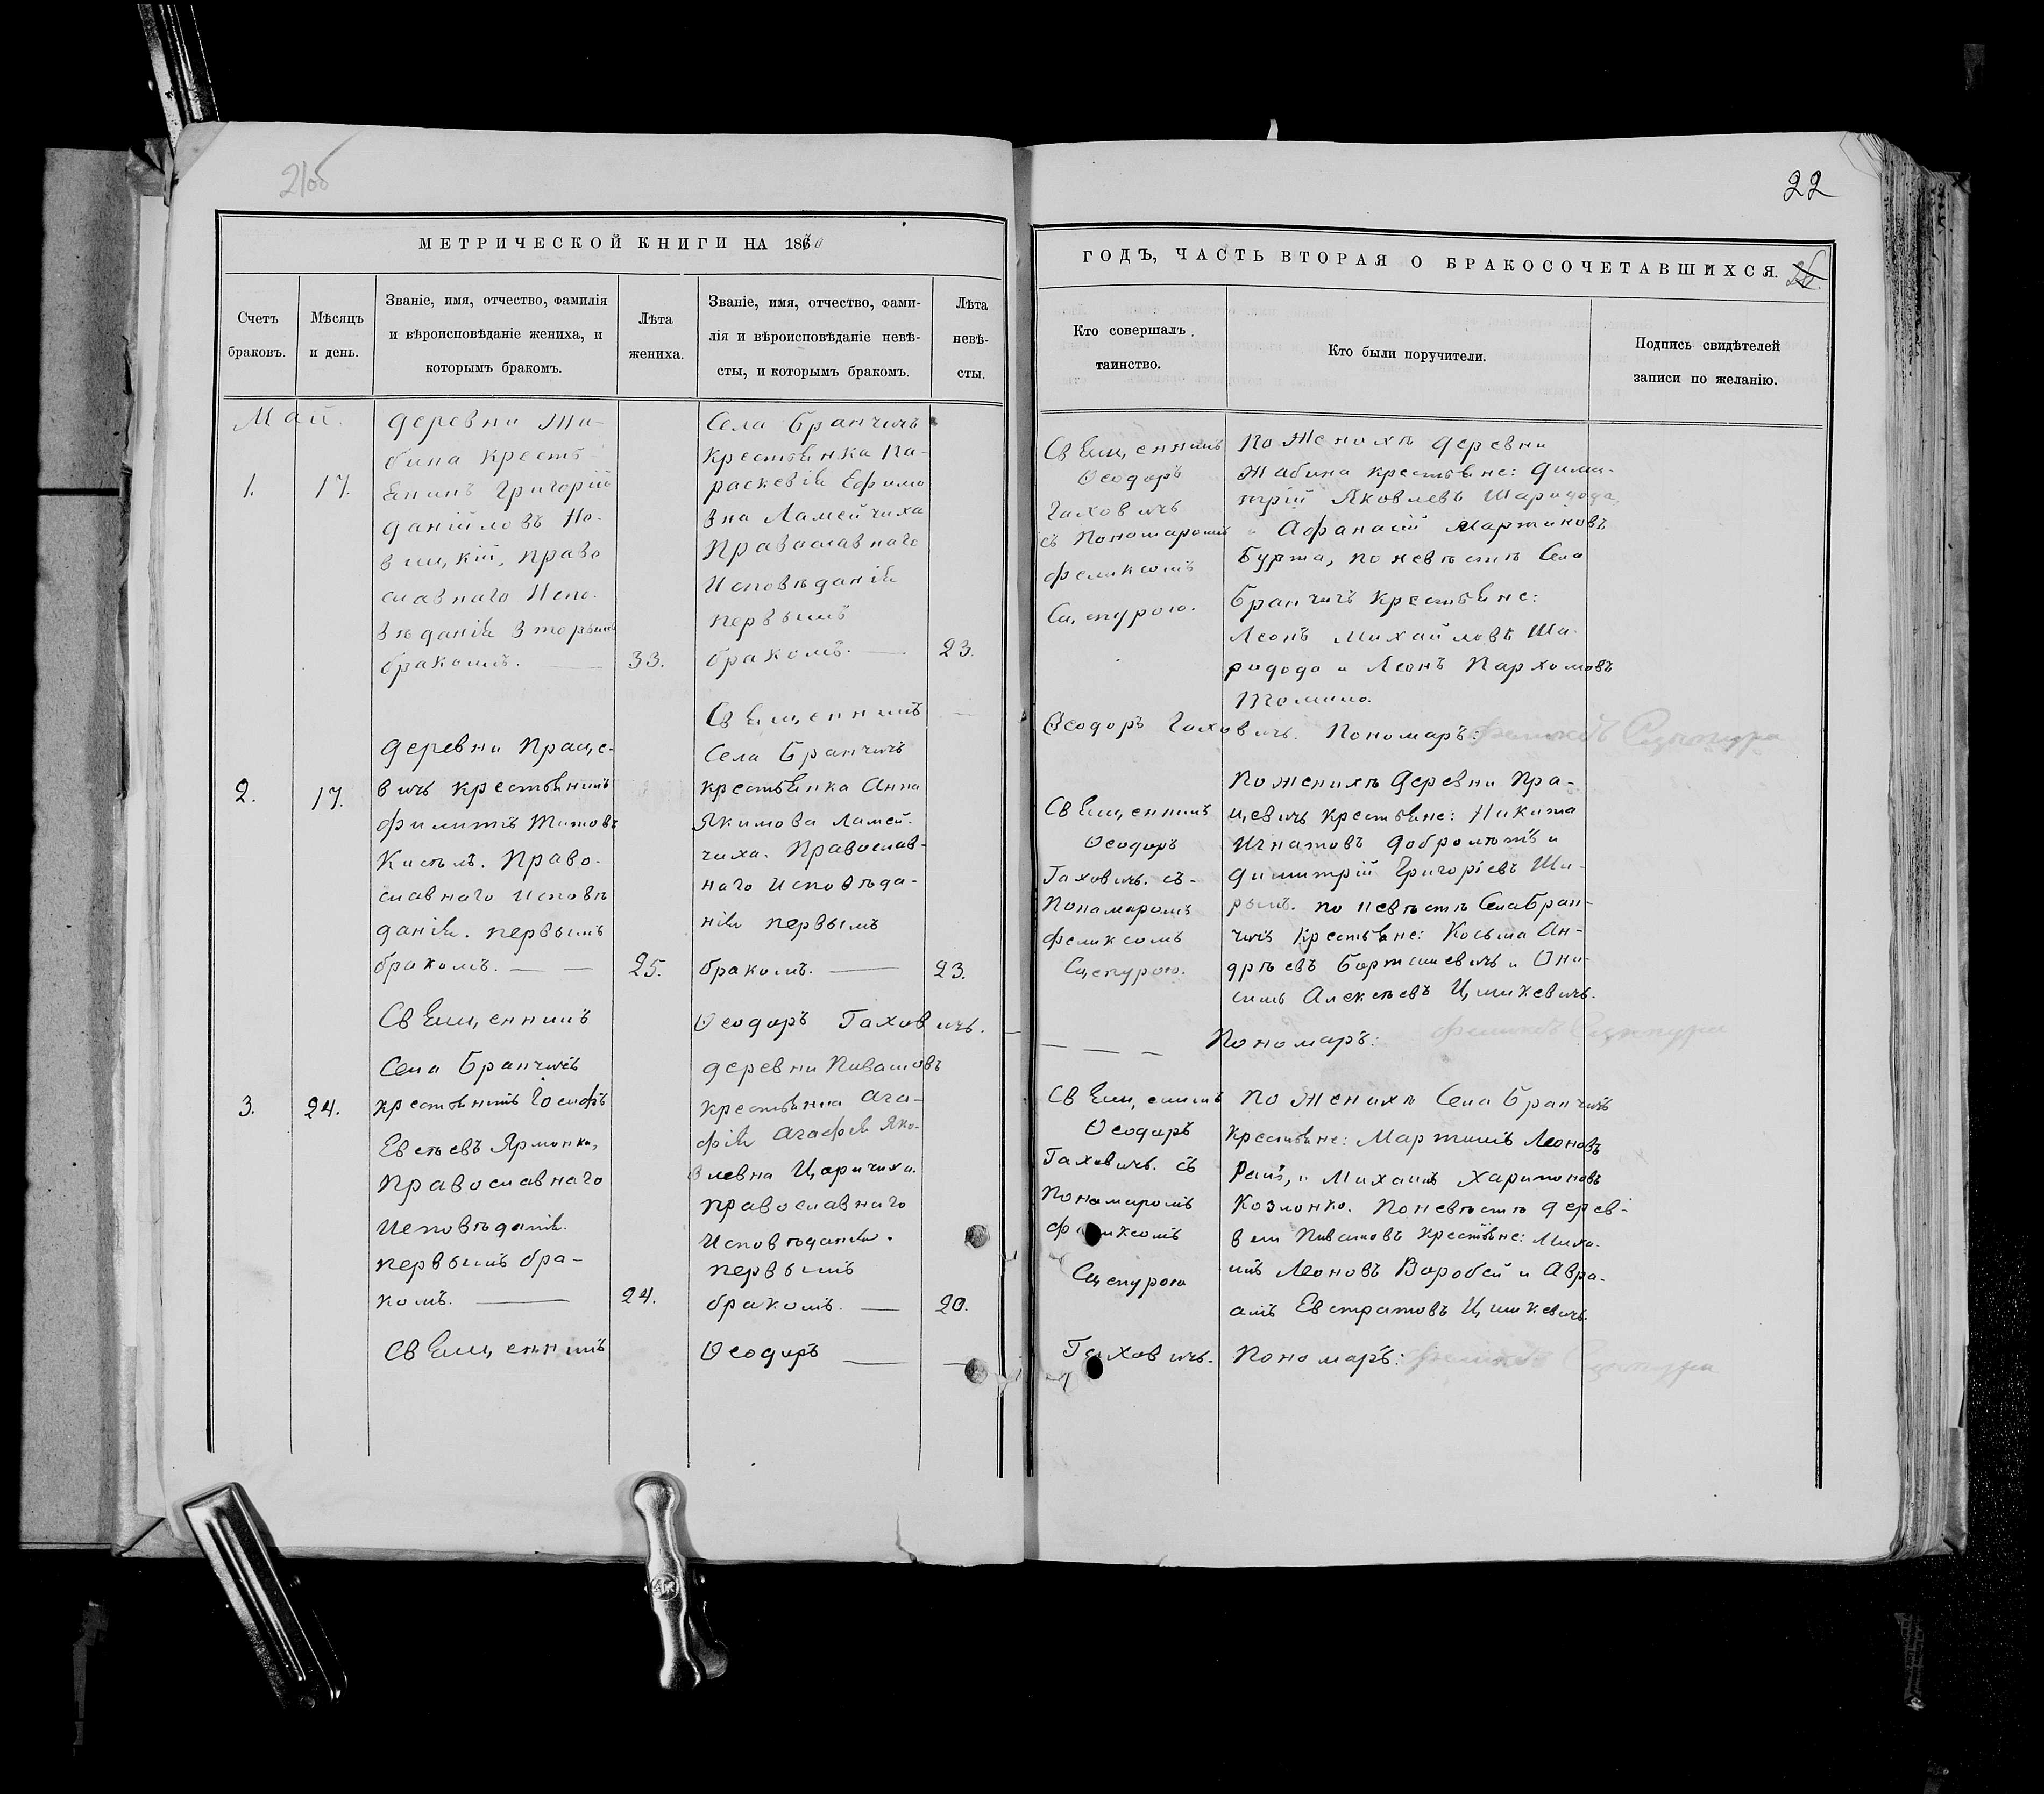 21об
22
МЕТРИЧЕСКОЙ КНИГИ НА 1870
ГОДЪ, ЧАСТЬ ВТОРАЯ О БРАКОСОЧЕТАВШИХСЯ.
Счетъ
браковъ.
Мѣсяцъ
и день.
Званіе, имя, отчество, фамилія
и вѣроисповѣданіе жениха, и
которымъ бракомъ.
Лѣта
жениха.
Званіе, имя, отчество, фами-
лія и вѣроисповѣданіе невѣ-
сты, и которымъ бракомъ.
Лѣта
невѣ-
сты.
Кто совершалъ
таинство.
Кто были поручители.
Подпись свидѣтелей
записи по желанію.
Май.
1.
17.
деревни Жа-
бина кресть-
янинъ Григорій
Даніиловъ Но-
вицкій, право
славнаго Испо-
вѣданія вторымъ
бракомъ.
33.
Села Бранчичъ
крестьянка Па-
раскевія Ефимо
вна Ламейчиха
Православнаго
Исповѣданія
первымъ
бракомъ.
23.
Священникъ
Ѳеодоръ
Гаховичъ
съ Пономаромъ
Феликсомъ
Сцепурою.
По Женихѣ деревни
Жабина крестьяне: Дими-
трій Яковлевъ Шародода
и Афанасій Мартиновъ
Бурта, по невѣстѣ Села
Бранчичъ Крестьяне:
Леонъ Михайловъ Ша-
родода и Леонъ Пархомовъ
Священникъ
Ѳеодоръ Гаховичъ. Пономаръ: Феликсъ Сцепура
2.
17.
деревни Праце-
вичъ крестьянинъ
Филиппъ Титовъ
Право-
славнаго исповѣ
данія. первымъ
бракомъ.
25.
Села Бранчичъ
крестьянка Анна
Якимова Ламей-
чиха. Православ-
наго Исповѣда-
нія первымъ
бракомъ.
23.
Священникъ
Ѳеодоръ
Гаховичъ. съ-
Пономаромъ
Феликсомъ
Сцепурою.
По женихѣ Деревни Пра-
цевичъ крестьяне: Никита
Игнатовъ и
Димитрій Григоріевъ Ши-
рымъ. по невѣстѣ Села Бран-
чичъ Крестьяне: Косьма Ан-
дрѣевъ Бортишевичъ и Они-
симъ Алексѣевъ Цишкевичъ.
Священникъ
Ѳеодоръ Гаховичъ.
Пономаръ: Феликсъ Сцепура
3.
24.
Села Бранчичъ
крестьянинъ Іосифъ
Евсѣевъ Ярмонко,
Православнаго
Исповѣданія.
первымъ бра-
комъ.
24.
деревни Пивашовъ
крестьянка Ага-
фія Агафія Яко-
влевна Царичиха.
православнаго
Исповѣданія.
первымъ
бракомъ.
20.
Священникъ
Ѳеодоръ
Гаховичъ. съ
Пономаромъ
Феликсомъ
Сцепурою
По Женихѣ Села Бранчичъ
Крестьяне: Мартинъ Леоновъ
и Михаилъ Харитоновъ
Козлонко. По невѣстѣ дерев-
Пивашовъ Крестьяне: Миха-
илъ Леоновъ Воробей и Авра-
амъ Евстратовъ Цишкевичъ.
Священникъ
Ѳеодоръ
Гаховичъ. Пономаръ: Феликсъ Сцепура